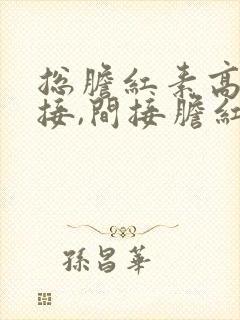 总膽紅素高
接,間接膽紅
孫昌華